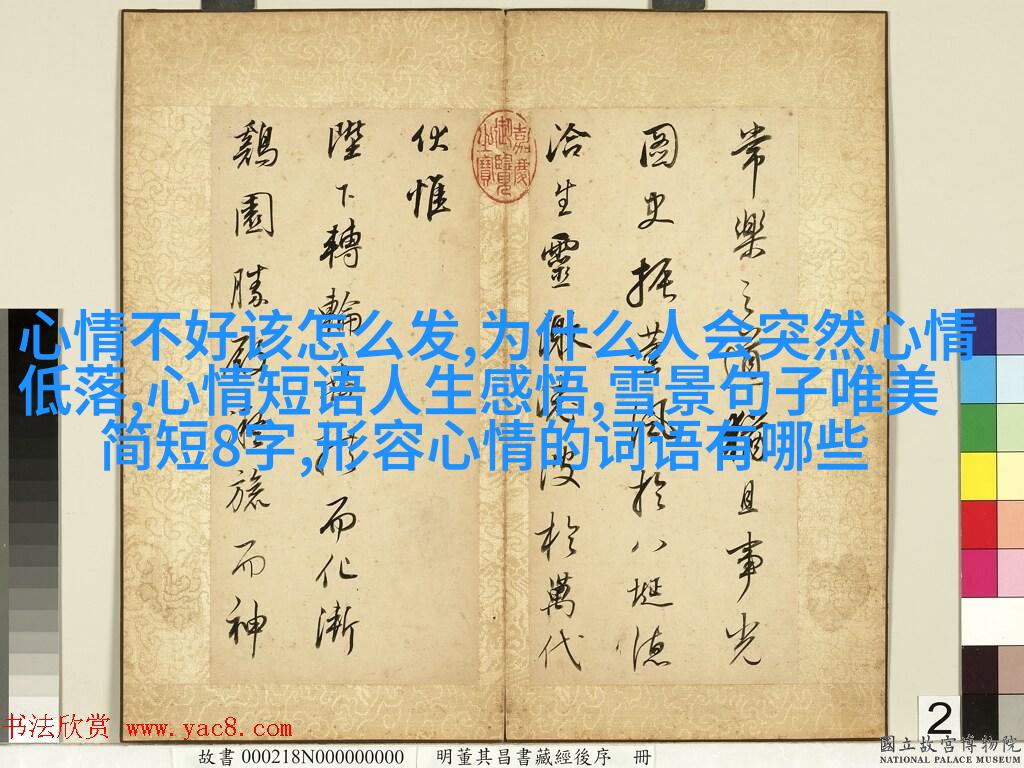 心情不好该怎么发,为什么人会突然心情
低落,心情短语人生感悟,雪景句子唯美
简短8字,形容心情的词语有哪些
常樂之道猶且事光
圖史振薫風於八埏德
洽生靈激澆波於萬代
伏惟
陛下轉輪垂拱而化漸
鷄園勝殿凝旒而神
嘉慶御覽之寶
2
书法欣赏 www.yac8.com
故書 000218N000000000 明董其昌書藏經後序 冊
國立故宮博物院
NATIONAL PALACE MUSEUM